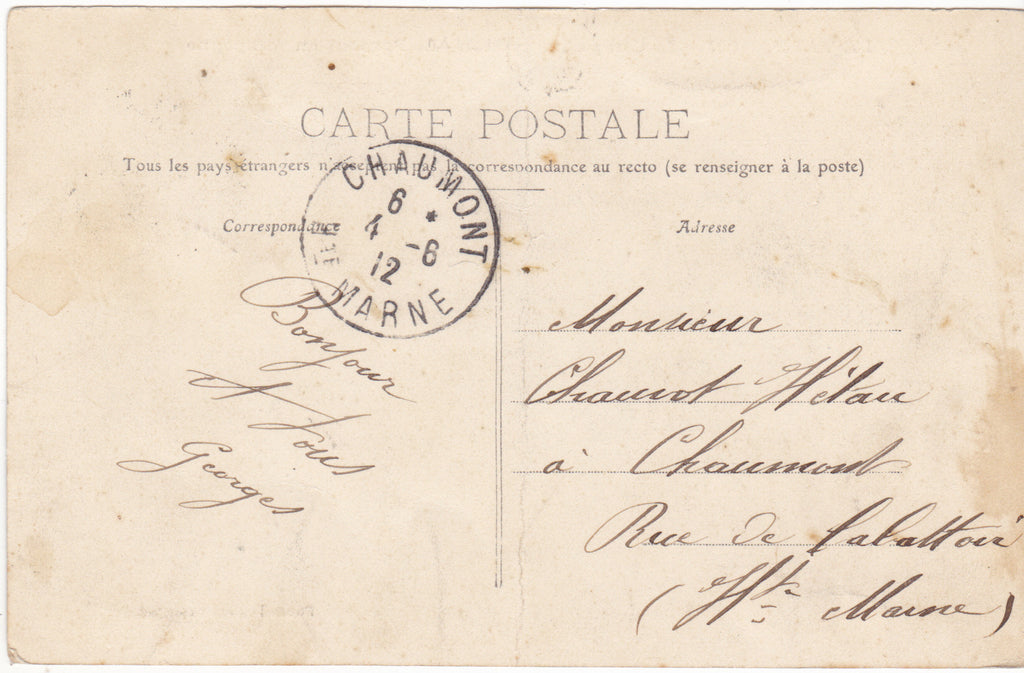 CARTE POSTALE
Tous les pays étrangers n'acceptent pas la correspondance au recto (se renseigner à la poste)
CHAUMONT
6 *
4 -6
12
HTE MARNE
Correspondance
Bonjour
A Tous
Georges
Adresse
Monsieur
Chauvot
à Chaumont
Rue de labattoir
(Hte Marne)